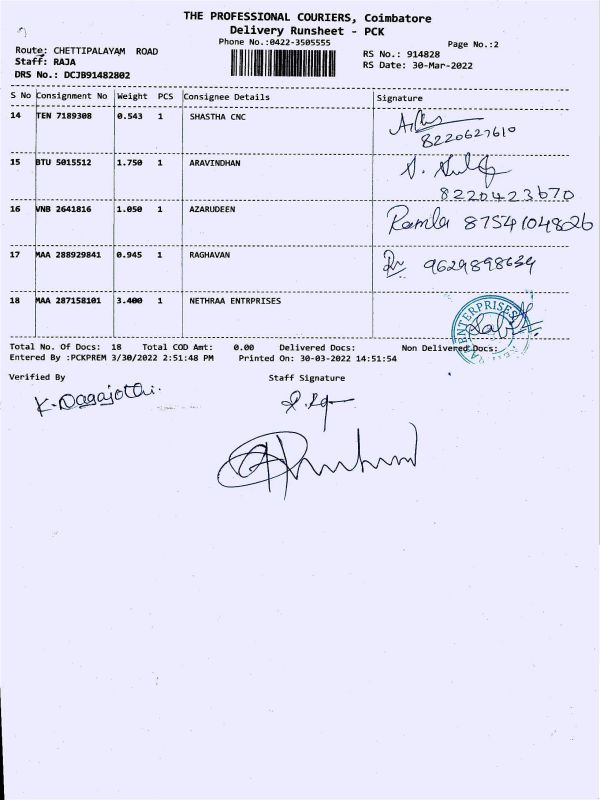 THE PROFESSIONAL COURIERS, Coimbatore
Delivery Runsheet - PCK
Phone No.:0422-3505555
Page No.:2
Route: CHETTIPALAYAM ROAD
RS No.: 914828
Staff: RAJA
RS Date: 30-Mar-2022
DRS No.: DCJB91482802
S No Consignment No Weight PCS Consignee Details Signature
14 TEN 7189308 0.543 1 SHASTHA CNC
8220627610
15 BTU 5015512 1.750 1 ARAVINDHAN
8220423670
16 VNB 2641816 1.050 1 AZARUDEEN Ramla 8754104826
17 MAA 288929841 0.945 1 RAGHAVAN 9629898634
18 MAA 287158101 3.400 1 NETHRAA ENTRPRISES
ENTERPRISES
Total No. Of Docs: 18 Total COD Amt: 0.00 Delivered Docs: Non Delivered Docs:
Entered By :PCKPREM 3/30/2022 2:51:48 PM Printed On: 30-03-2022 14:51:54
Verified By Staff Signature